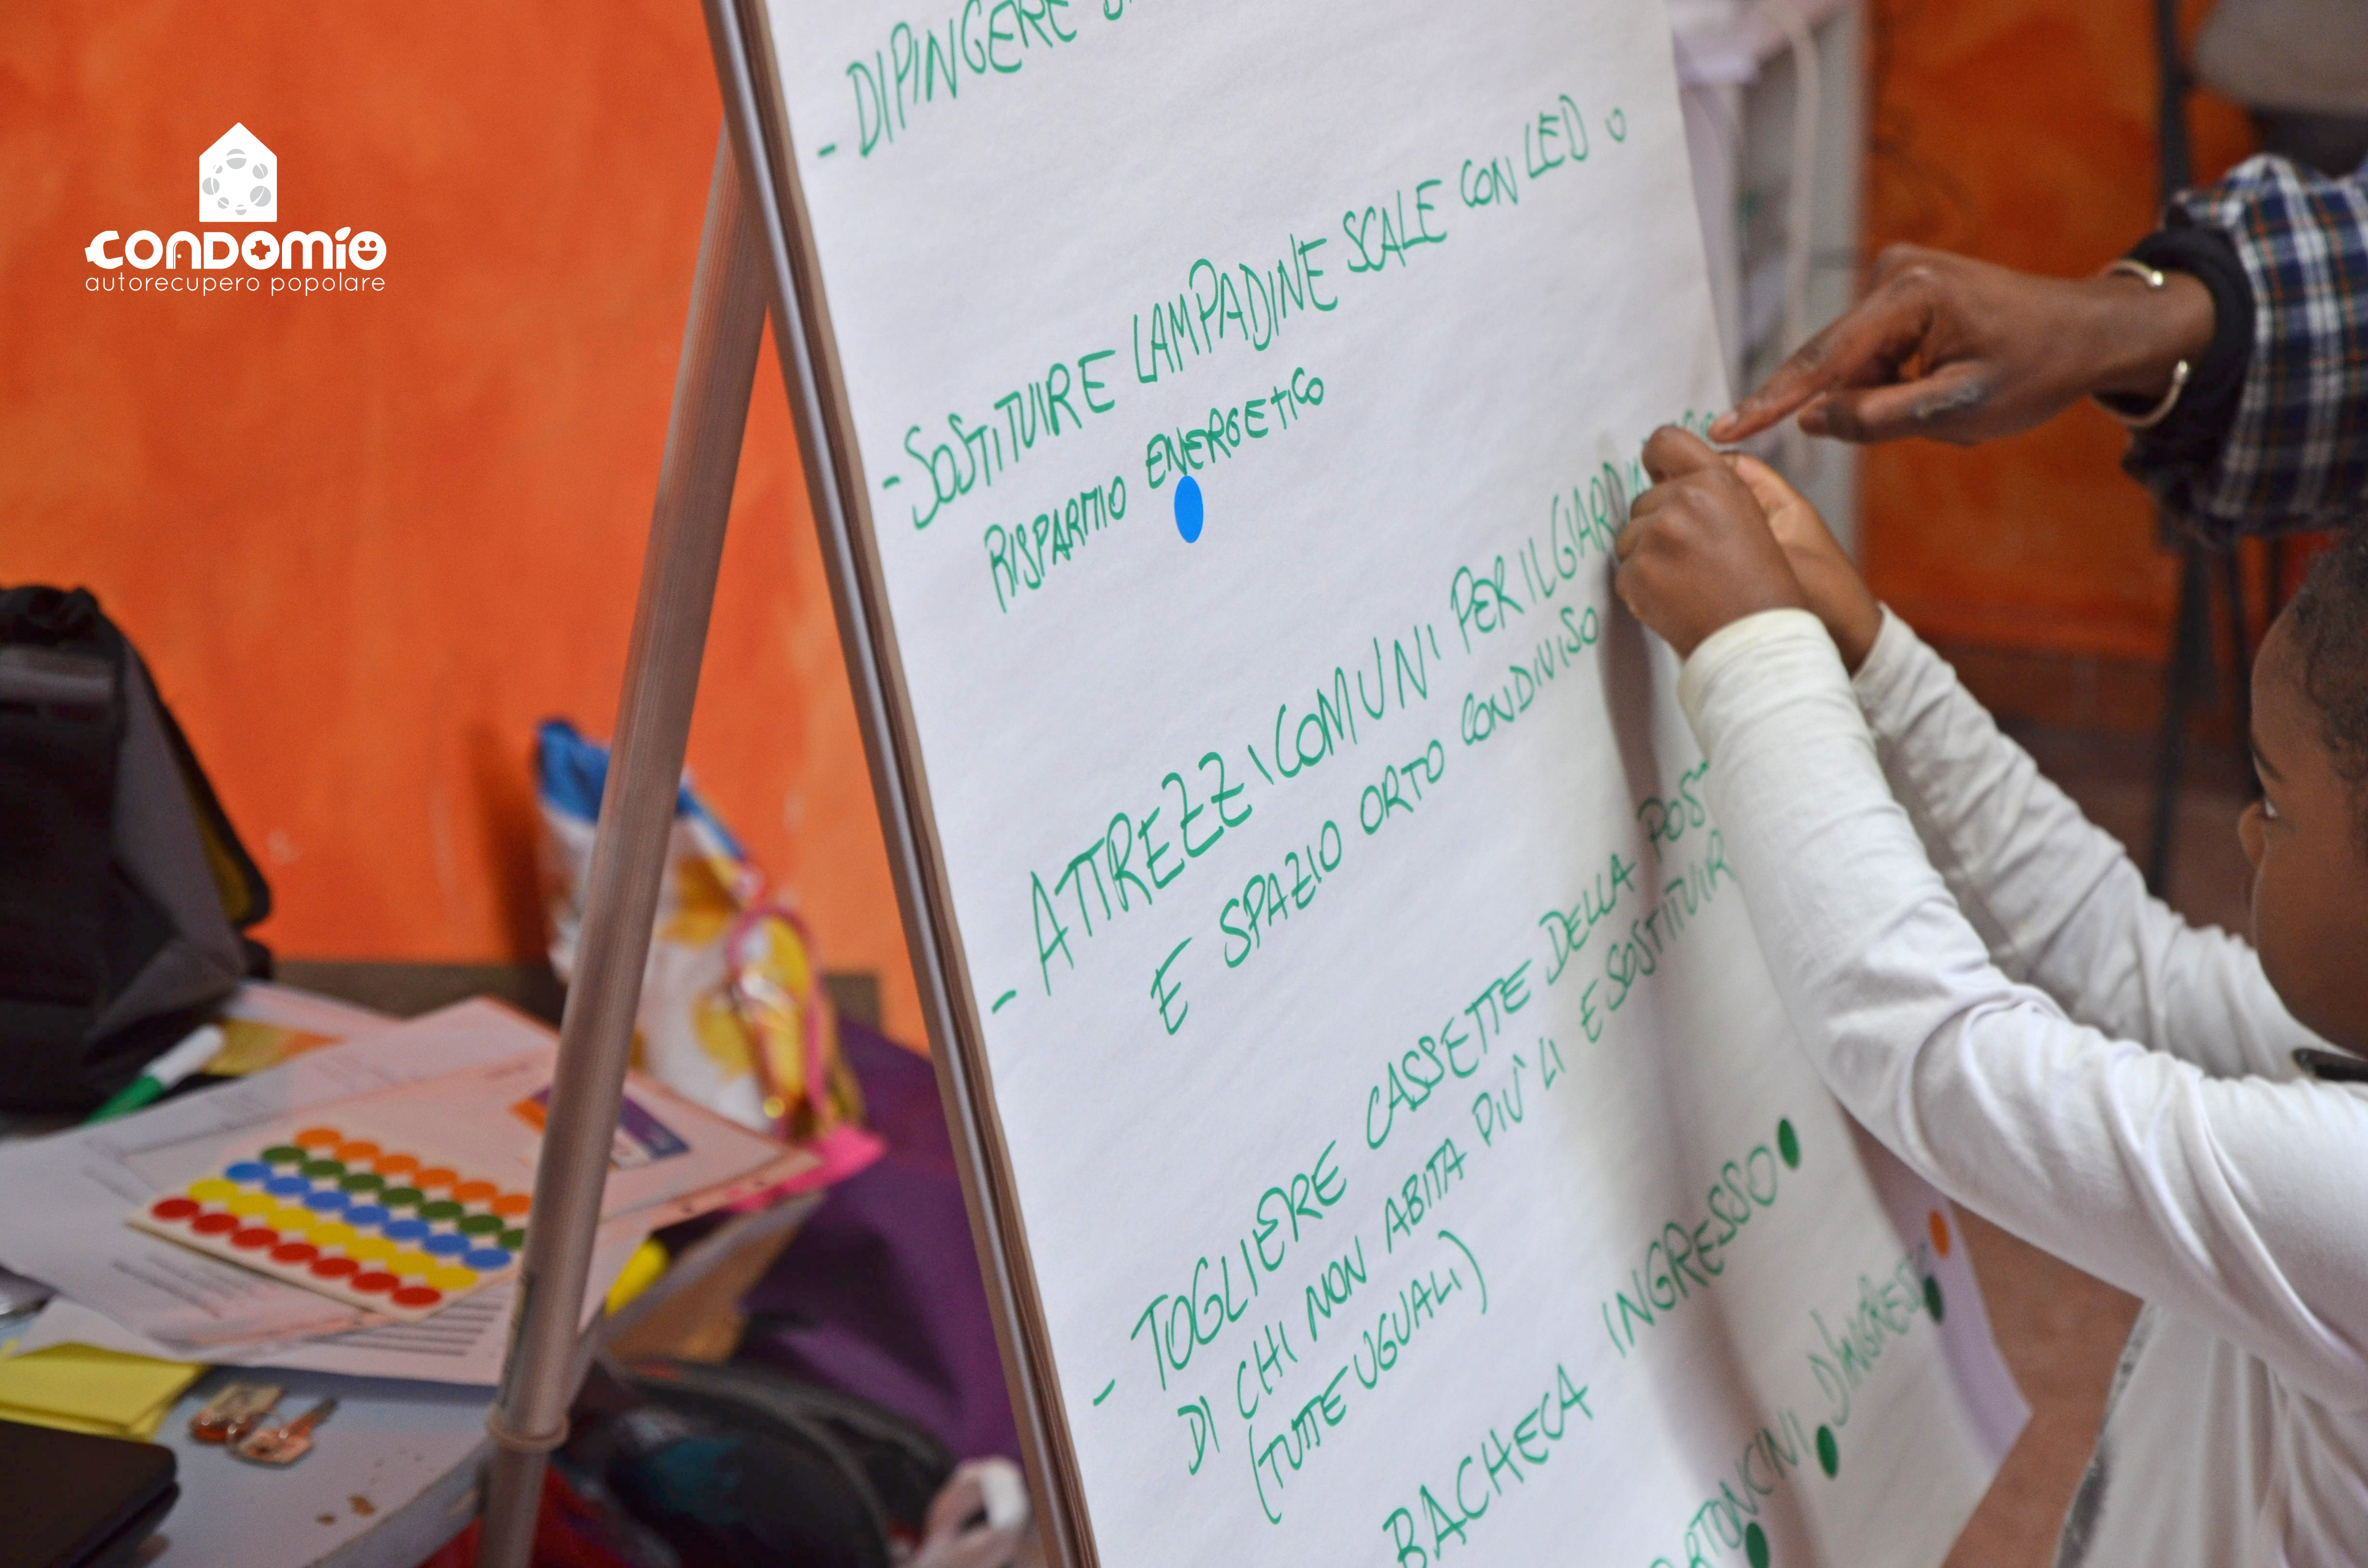 CONDOMÍO
autorecupero popolare
- DIPINGERE
- SOSTITUIRE LAMPADINE SCALE CON LED O
RISPARMIO ENERGETICO
- ATTREZZI COMUNI PER IL
E SPAZIO ORTO CONDIVISO
- TOGLIERE CASSETTE DELLA
DI CHI NON ABITA PIÙ LÌ E
(TUTTE UGUALI)
BACHECA INGRESSO
D'INGRESSO